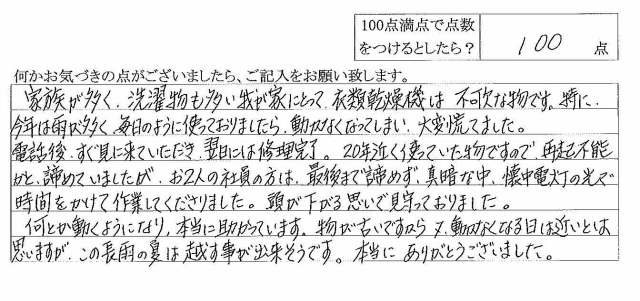 100点満点で点数
をつけるとしたら？
100 点
何かお気づきの点がございましたら、ご記入をお願い致します。
家族が多く、洗濯物も多い我が家にとって、衣類乾燥機は不可欠な物です。特に、
今年は雨が多く、毎日のように使っておりましたら、動かなくなってしまい、大変慌てました。
電話後、すぐ見に来ていただき、翌日には修理完了。20年近く使っていた物ですので、再起不能
かと、諦めていましたが、お2人の社員の方は、最後まで諦めず、真暗な中、懐中電灯の光で
時間をかけて作業してくださりました。頭が下がる思いで見守っておりました。
何とか動くようになり、本当に助かっています。物が古いですから又、動かなくなる日は近いとは
思いますが、この長雨の夏は越す事が出来そうです。本当にありがとうございました。